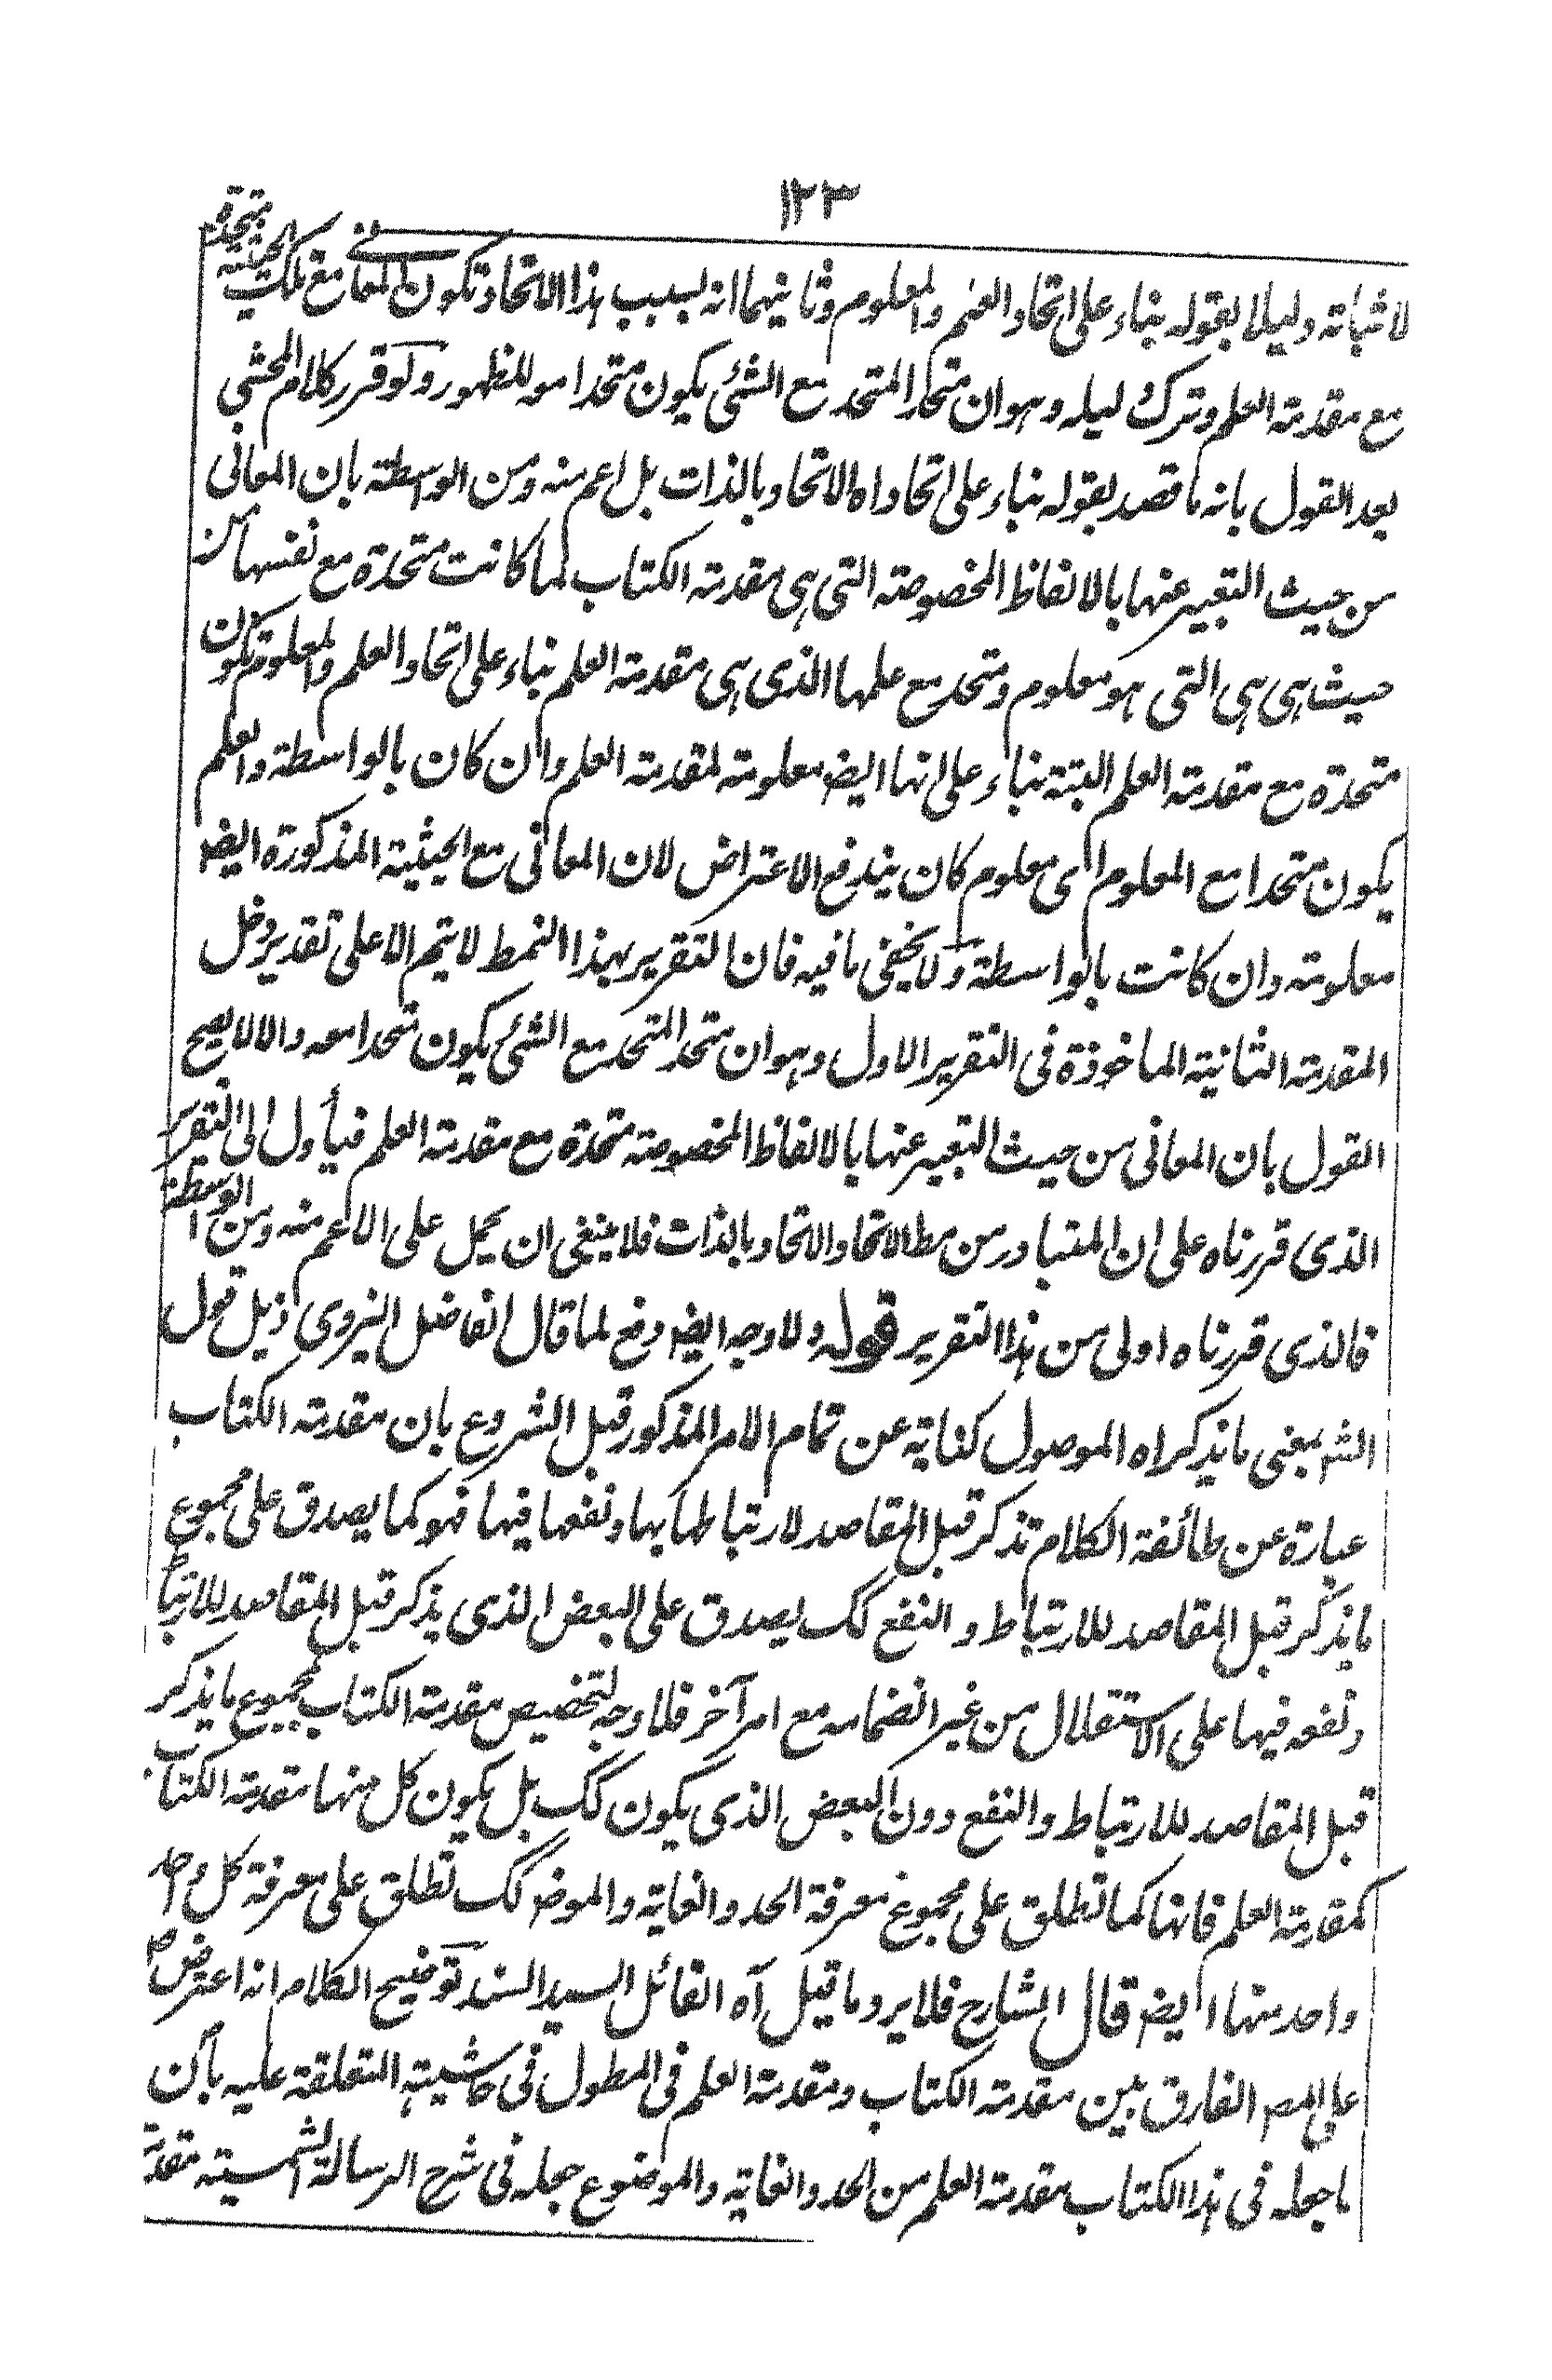 ١٢٣
لاثباته دليلا بقوله بناء على اتحاد العلم والمعلوم وثانيهما انه بسبب هذا الاتحاد تكون المعانى مع تلك الحيثية متحدة
مع مقدمة العلم وترك ليله وهو ان متحد المتحد مع الشئ يكون متحدا معه للظهور ولو قرر كلام المحشى
بعد القول بانه ما قصد بقوله بناء على اتحاد اه الاتحاد بالذات بل اعم منه ومن الواسطة بان المعانى
من حيث التعبير عنها بالالفاظ المخصوصة التى هى مقدمة الكتاب لما كانت متحدة مع نفسها من
حيث هى هى التى هو معلوم ومتحد مع علمها الذى هى مقدمة العلم بناء على اتحاد العلم والمعلوم تكون
متحدة مع مقدمة العلم البتة بناء على انها ايض معلومة لمقدمة العلم وان كان بالواسطة والعلم
يكون متحدا مع المعلوم اى معلوم كان يندفع الاعتراض لان المعانى مع الحيثية المذكورة ايض
معلومة وان كانت بالواسطة ولا يخفى ما فيه فان التقرير بهذا النمط لا يتم الا على تقدير دخل
المقدمة الثانية الماخوذة فى التقرير الاول وهو ان متحد المتحد مع الشئ يكون متحدا معه والا لا يصح
القول بان المعانى من حيث التعبير عنها بالالفاظ المخصوصة متحدة مع مقدمة العلم فيأول الى التقرير
الذى قررناه على ان المتبادر من مطلا الاتحاد الاتحاد بالذات فلا ينبغى ان يحمل على الاعم منه ومن الواسطة
فالذى قررناه اولى من هذا التقرير قوله ولا وجه ايض دفع لما قال الفاضل اليزدى ذيل قول
الش بمعنى ما يذكر اه الموصول كناية عن تمام الامر المذكور قبل الشروع بان مقدمة الكتاب
عبارة عن طائفة الكلام تذكر قبل المقاصد لارتباط لها بها ونفعها فيها فهو كما يصدق على مجموع
ما يذكر قبل المقاصد للارتباط والنفع كك يصدق على البعض الذى يذكر قبل المقاصد للارتباط
ونفعه فيها على الاستقلال من غير انضمامه مع امر آخر فلا وجه لتخصيص مقدمة الكتاب بمجموع ما يذكر
قبل المقاصد للارتباط والنفع دون البعض الذى يكون كك بل يكون كل منها مقدمة الكتاب
كمقدمة العلم فانها كما تطلق على مجموع معرفة الحد والغاية والموض كك تطلق على معرفة كل واحد
واحد منها ايض قال الشارح فلا يرد ما قيل آه القائل السيد السند توضيح الكلام انه اعترض
على المص الفارق بين مقدمة الكتاب ومقدمة العلم فى المطول فى حاشيته المتعلقة عليه بان
ما جعله فى هذا الكتاب مقدمة العلم من الحد والغاية والموضوع جعله فى شرح الرسالة الشمسية مقدمة